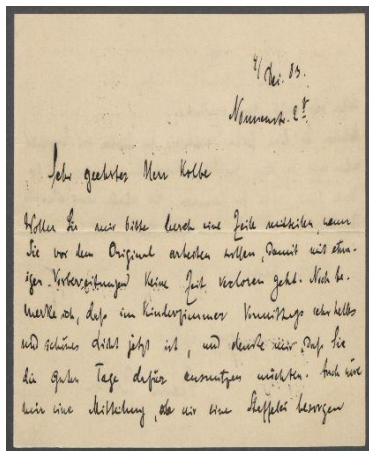 4/ Dez. 03.
Nonnenstr. 2
Sehr geehrter Herr Kolbe
Wollen Sie mir bitte durch eine Zeile mitteilen, wann
Sie vor dem Original arbeiten wollen, damit mit etwa-
igen Vorbereitungen keine Zeit verloren geht. Noch be-
merke ich, daß im Kinderzimmer Vormittags sehr helles
und schönes Licht jetzt ist, und denke mir, daß Sie
die guten Tage dafür ausnutzen möchten. Auch wäre
mir eine Mitteilung, ob wir eine Staffelei besorgen